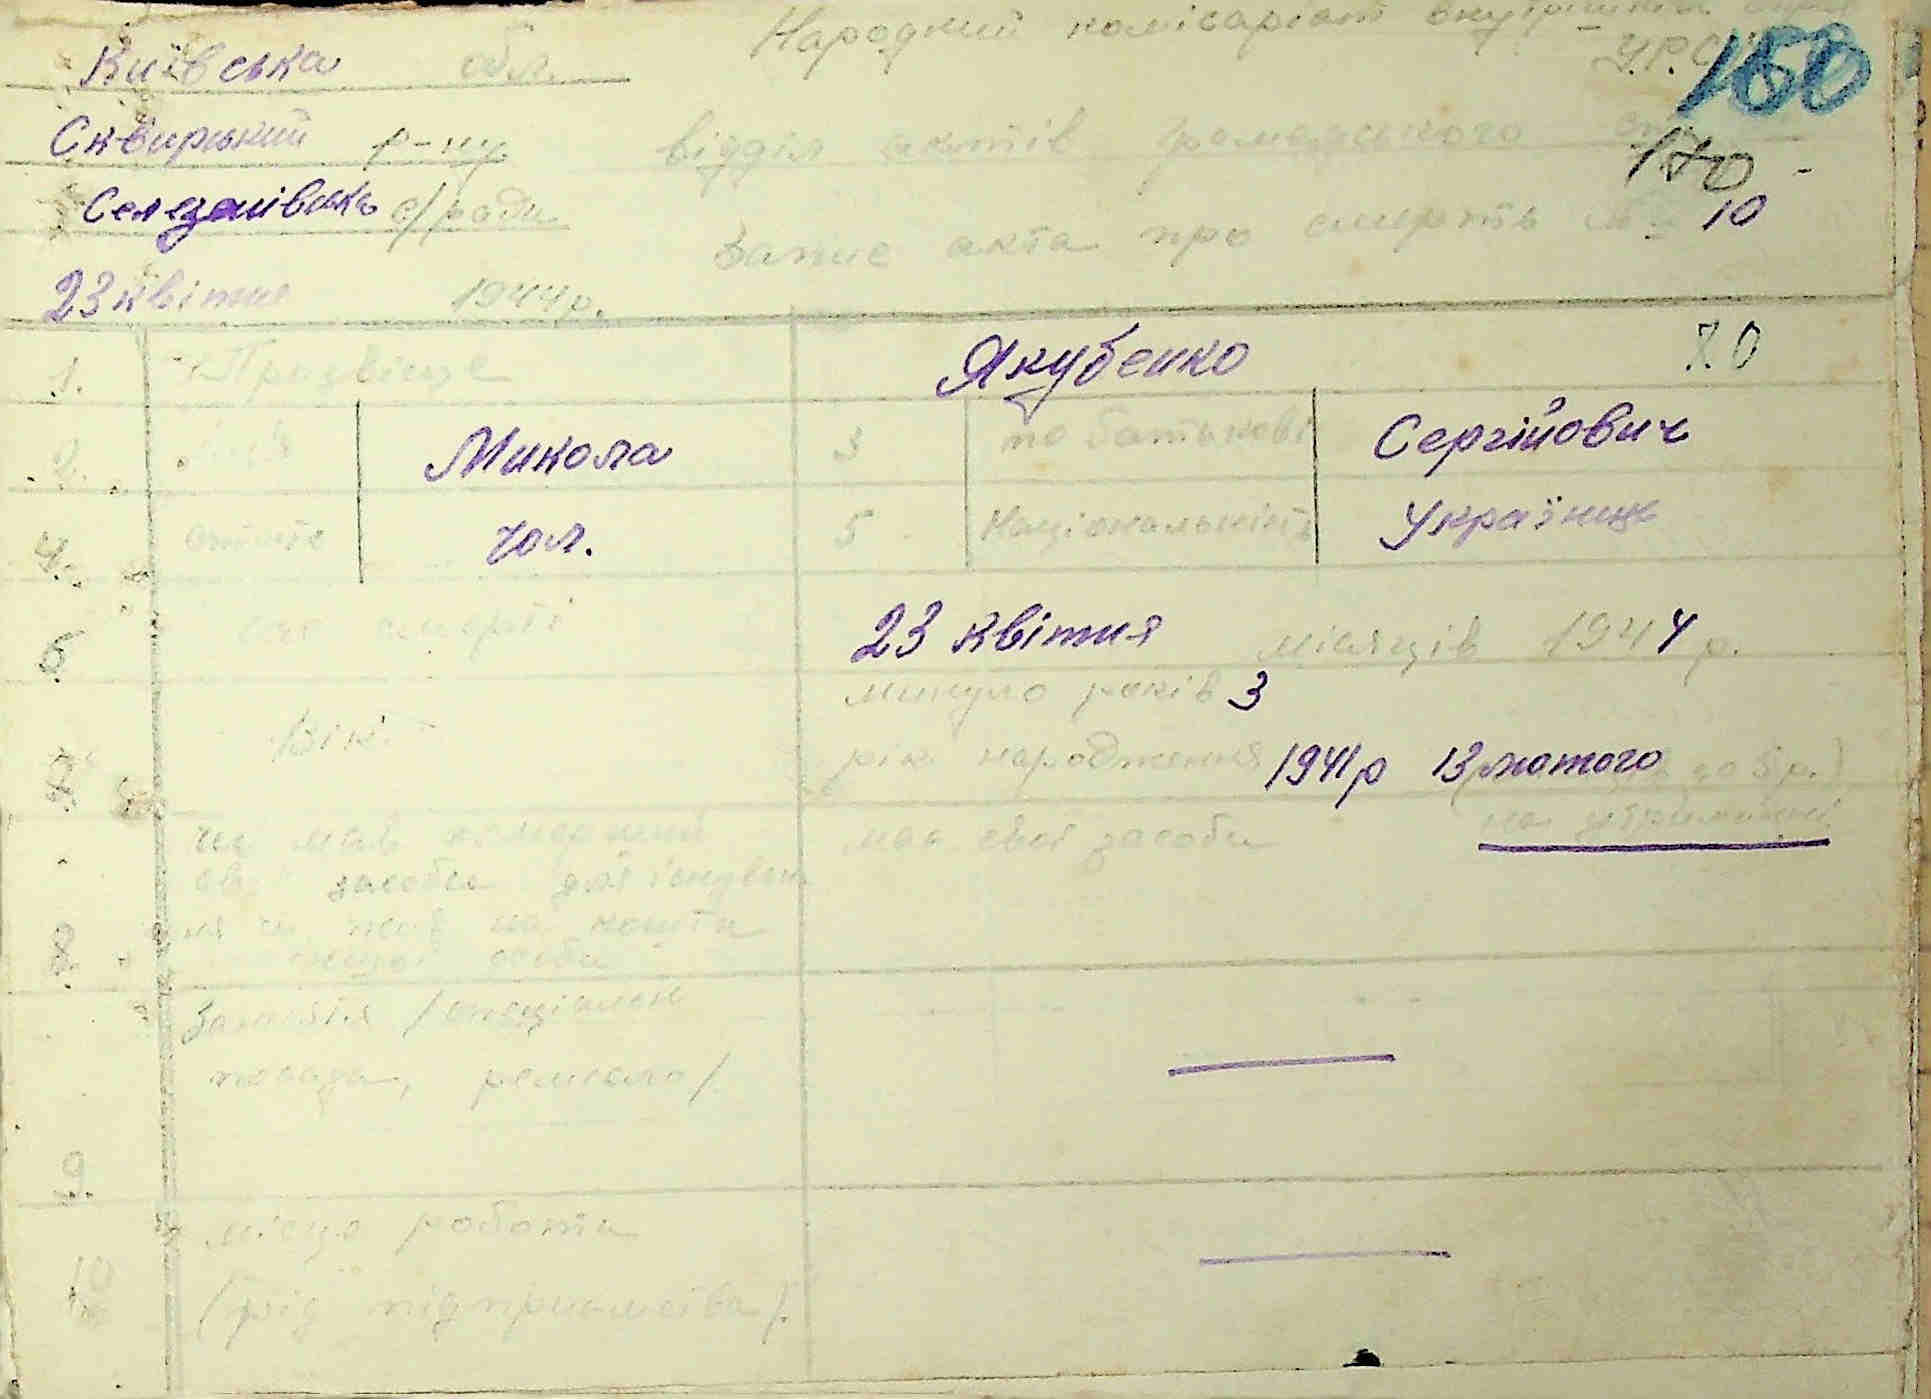 Київська обл. Народний комісаріат внутрішніх справ
У.Р.С.Р. 160
Сквирський р-ну відділ актів громадського стану
170 -
Селезенівська с/ради Запис акта про смерть № 10
23 квітня 1944 р.
1. Прізвище Якубенко 70
2. Ім'я Микола 3 по батькові Сергійович
4. стать чол. 5 Національність Українець
6 час смерті 23 квітня місяців 1944 р.
минуло років 3
7 Вік рік народження 1941 р 13 лютого до 5 р.)
чи мав померший має свої засоби на утриманні
засоби для існуван
ня чи жив на кошти
8. особи
Заняття /спеціальн
посада, ремесло/.
9.
місце роботи
10 /рід підприємства/.